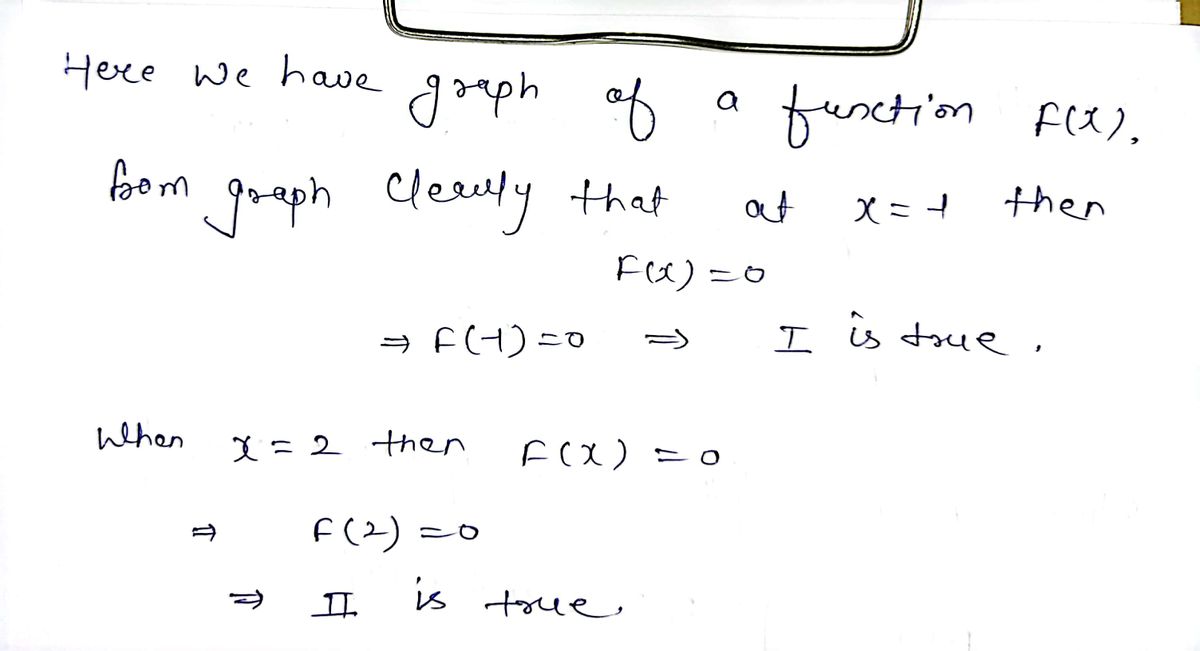 Here we have graph of a function F(x),
from graph clearly that at x = -1 then
F(x) = 0
⇒ F(-1) = 0 ⇒ I is true.
When x = 2 then F(x) = 0
⇒ F(2) = 0
⇒ II is true.